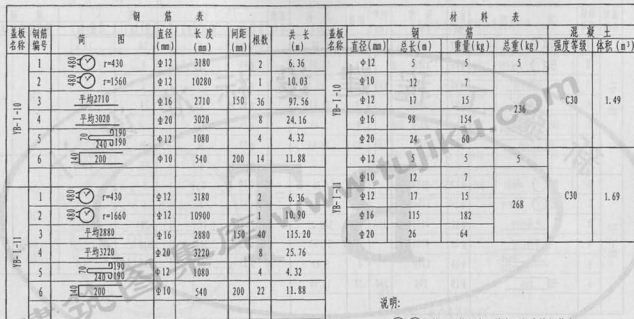 钢 筋 表
盖板名称 钢筋编号 简 图 直径(mm) 长 度(mm) 间距(mm) 根数 共 长(m)
YB-1-10
1 480 r=430 Φ12 3180 2 6.36
2 480 r=1560 Φ12 10280 1 10.03
3 平均2710 Φ16 2710 150 36 97.56
4 平均3020 Φ20 3020 8 24.16
5 70 240 190 190 Φ12 1080 4 4.32
6 140 200 Φ10 540 200 14 11.88
YB-1-11
1 480 r=430 Φ12 3180 2 6.36
2 480 r=1660 Φ12 10900 1 10.90
3 平均2880 Φ16 2880 150 40 115.20
4 平均3220 Φ20 3220 8 25.76
5 70 240 190 190 Φ12 1080 4 4.32
6 140 200 Φ10 540 200 22 11.88
材 料 表
盖板名称 钢 筋 混 凝 土
直径(mm) 总长(m) 重量(kg) 总重(kg) 强度等级 体积(m³)
YB-1-10
Φ12 5 5 5
Φ10 12 7
Φ12 17 15
Φ16 98 154
Φ20 24 60
236 C30 1.49
YB-1-11
Φ12 5 5 5
Φ10 12 7
Φ12 17 15
Φ16 115 182
Φ20 26 64
268 C30 1.69
说明:
www.tujiku.com